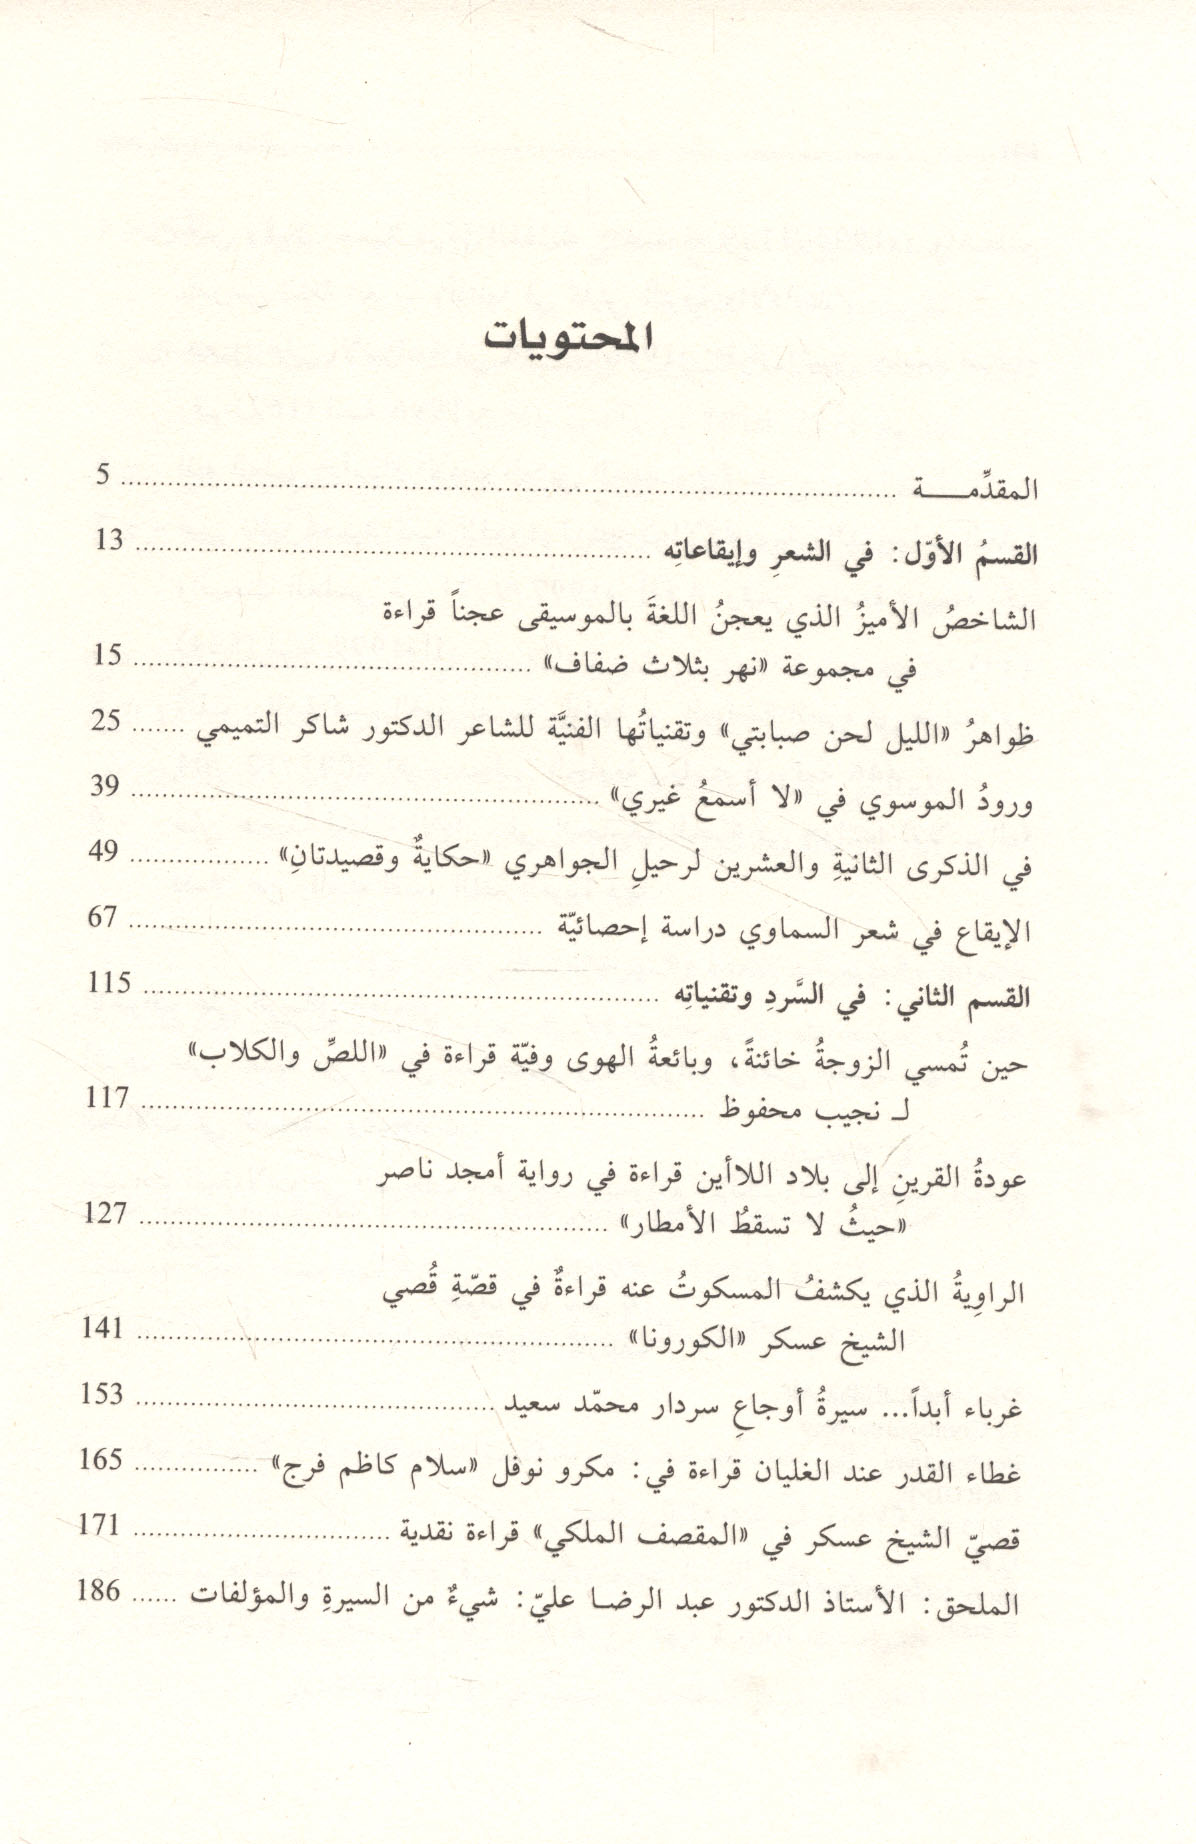 المحتويات
المقدِّمـــــة ................ 5
القسمُ الأوّل: في الشعرِ وإيقاعاتِه ................ 13
الشاخصُ الأميزُ الذي يعجنُ اللغةَ بالموسيقى عجناً قراءة
في مجموعة «نهر بثلاث ضفاف» ................ 15
ظواهرُ «الليل لحن صبابتي» وتقنياتُها الفنيَّة للشاعر الدكتور شاكر التميمي ....... 25
ورودُ الموسوي في «لا أسمعُ غيري» ................ 39
في الذكرى الثانيةِ والعشرين لرحيلِ الجواهري «حكايةٌ وقصيدتانِ» ................ 49
الإيقاع في شعر السماوي دراسة إحصائيّة ................ 67
القسم الثاني: في السَّردِ وتقنياتِه ................ 115
حين تُمسي الزوجةُ خائنةً، وبائعةُ الهوى وفيّة قراءة في «اللصِّ والكلاب»
لـ نجيب محفوظ ................ 117
عودةُ القرينِ إلى بلاد اللاأين قراءة في رواية أمجد ناصر
«حيثُ لا تسقطُ الأمطار» ................ 127
الراوِيةُ الذي يكشفُ المسكوتُ عنه قراءةٌ في قصّةِ قُصي
الشيخ عسكر «الكورونا» ................ 141
غرباء أبداً... سيرةُ أوجاعِ سردار محمّد سعيد ................ 153
غطاء القدر عند الغليان قراءة في: مكرو نوفل «سلام كاظم فرج» ................ 165
قصيّ الشيخ عسكر في «المقصف الملكي» قراءة نقدية ................ 171
الملحق: الأستاذ الدكتور عبد الرضـا عليّ: شيءٌ من السيرةِ والمؤلفات ...... 186